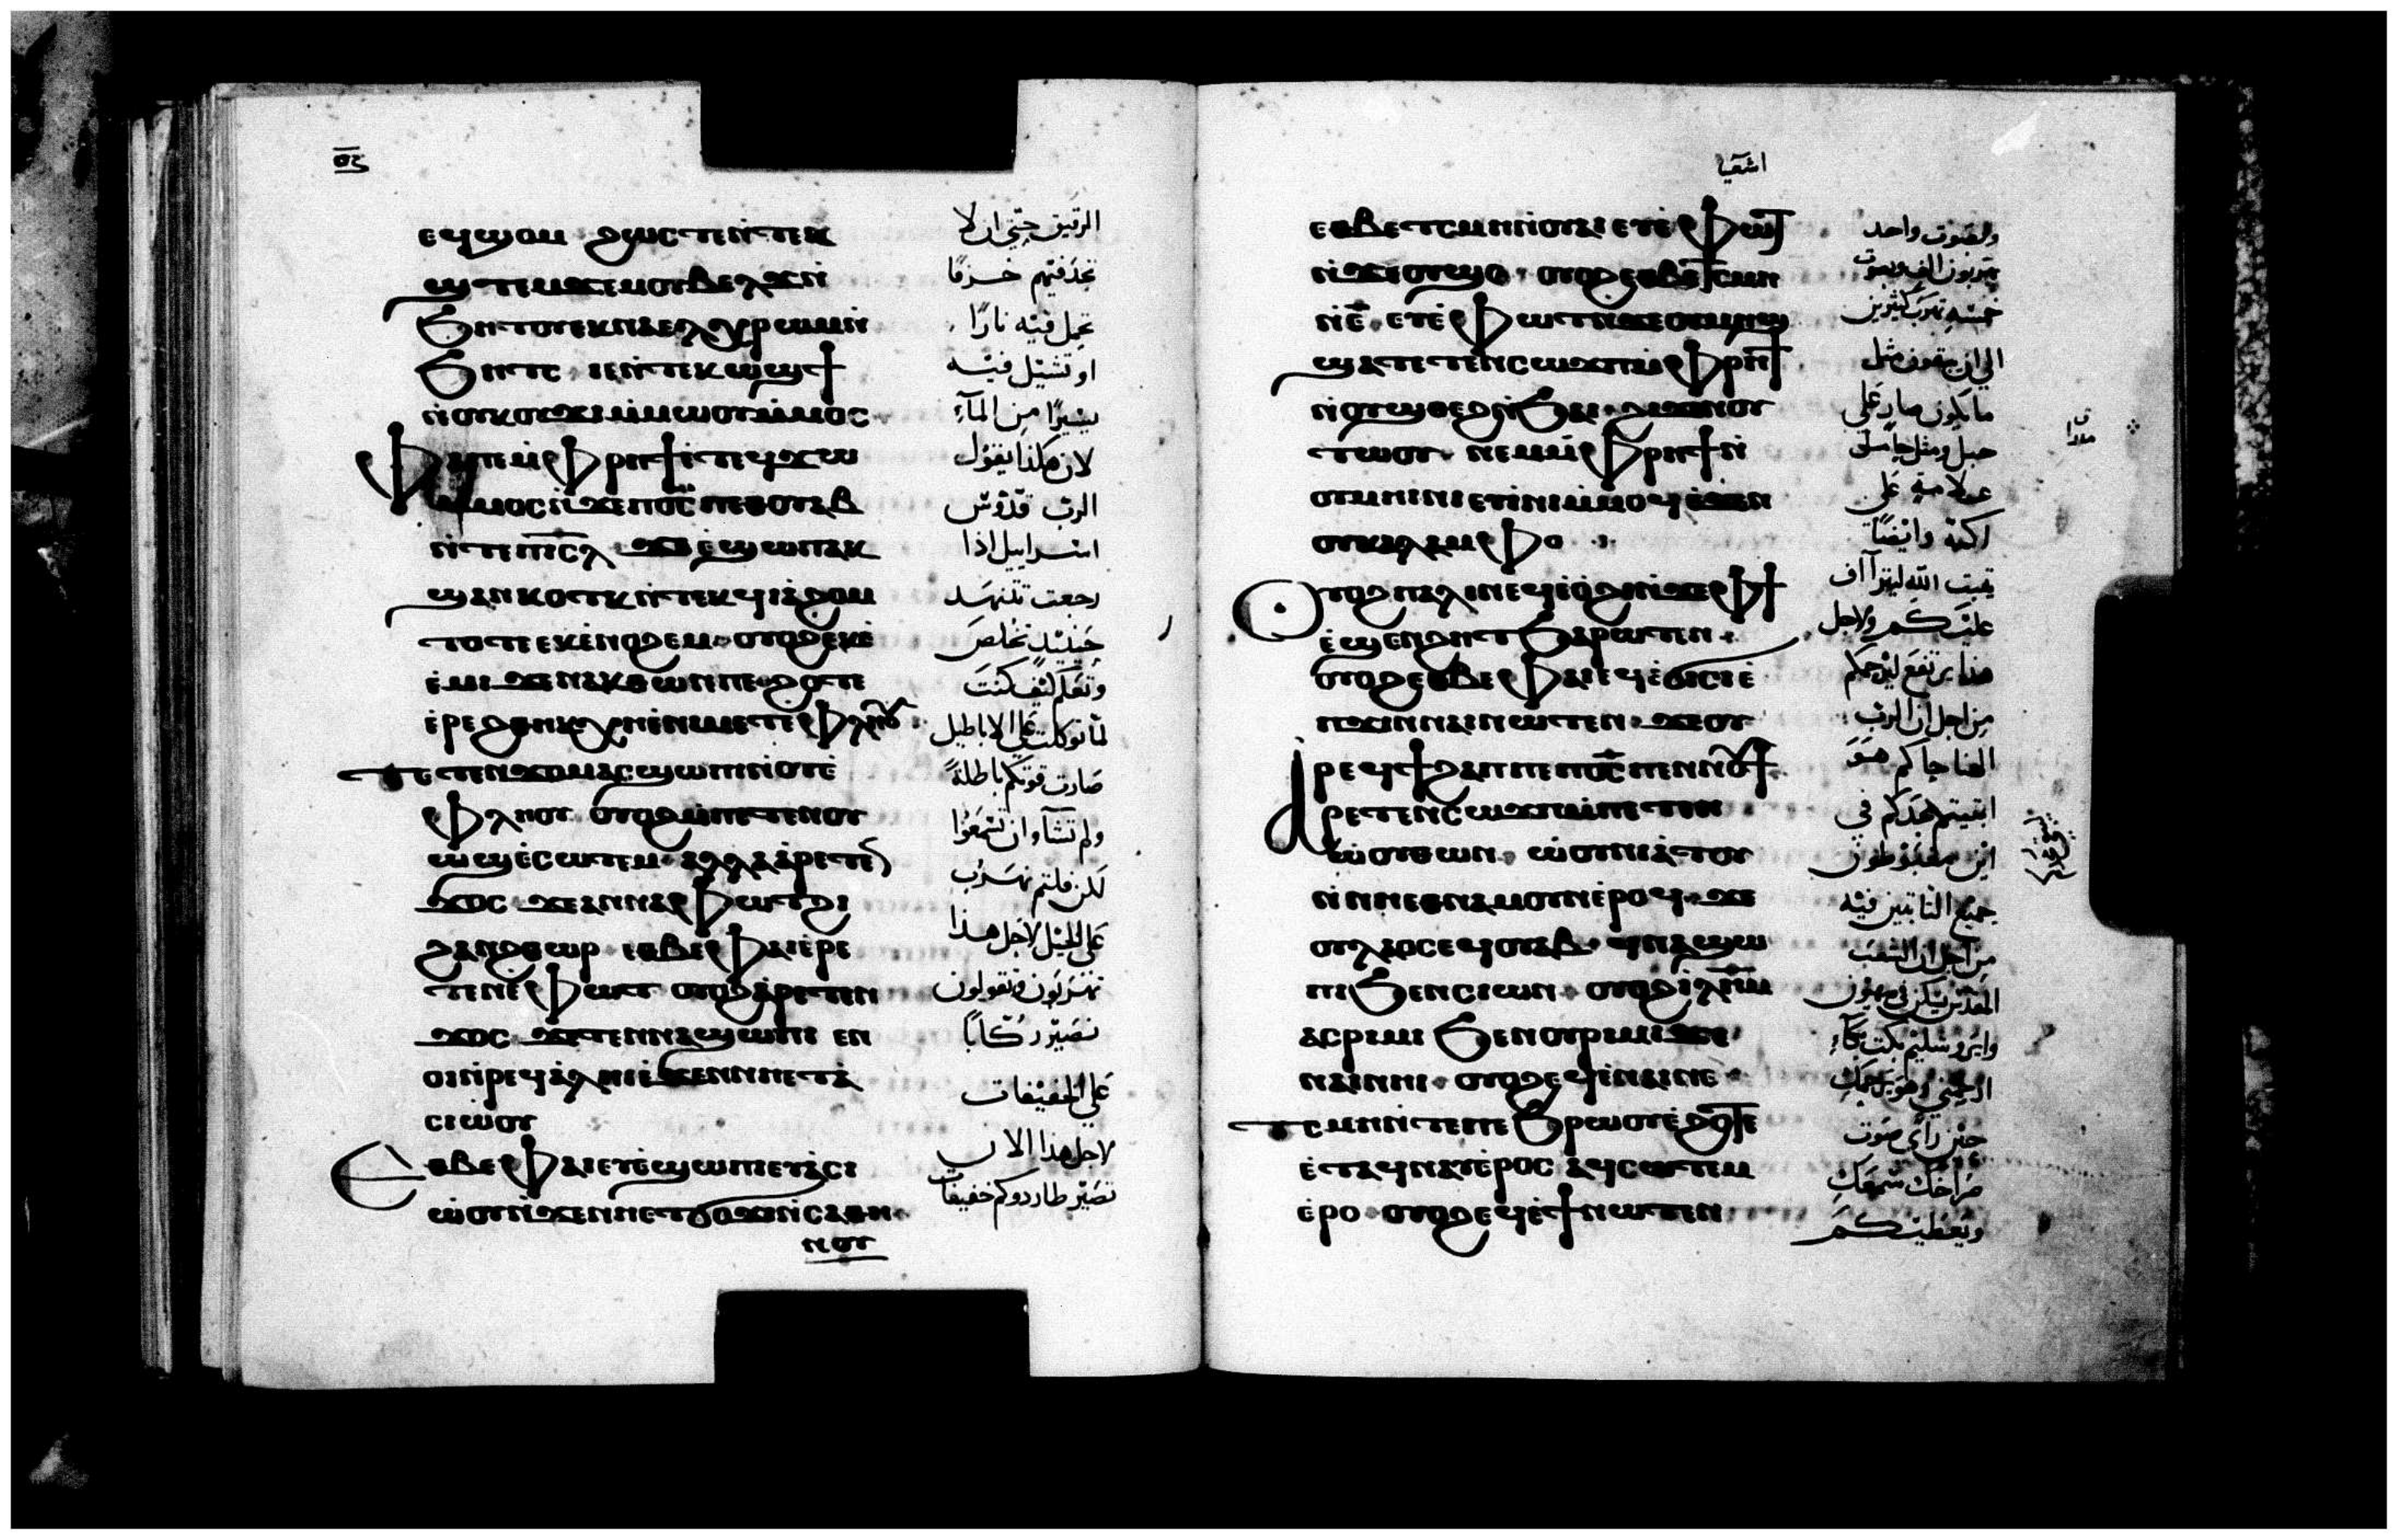 ⲉϥϣⲟⲙ ϩⲱⲥⲧⲉⲛ̀ⲧⲉⲕ
ϣⲧⲉⲙϫⲉⲙⲟⲩⲃⲉⲗϫⲛ̀
ϧⲏⲧⲟⲩⲉⲕⲛⲁⲉⲗⲭⲣⲱⲙⲛ̀
ϧⲏⲧⲥ ⲓⲉⲛ̀ⲧⲉⲕⲱϣϯ
ⲛ̀ⲟⲩⲕⲟⲩϫⲓⲙ̀ⲙⲱⲟⲩⲙ̀ⲙⲟⲥ
ⲫⲁⲓⲡⲉⲙ̀ⲫⲣⲏϯⲉ̀ⲧⲉϥϫⲱ
ⲙ̀ⲙⲟⲥⲛ̀ϫⲉⲡⲟ̅ⲥ̅ ⲡⲉⲑⲟⲩⲁⲃ
ⲛ̀ⲧⲉⲡⲓⲥ̅ⲗ̅ ϫⲉⲉ̀ϣⲱⲡⲁⲕ
ϣⲁⲛⲕⲟⲧⲕⲛ̀ⲧⲉⲕϥⲓⲁ̀ϩⲟⲙ
ⲧⲟⲧⲉⲉⲕⲉ̀ⲛⲟϩⲉⲙ ⲟⲩⲟϩⲉⲕⲉ̀
ⲉ̀ⲙⲓ ϫⲉⲛⲁⲕⲑⲱⲛⲡⲉ ϩⲟⲧⲉ
ⲉ̀ⲣⲉϩⲑⲏⲕⲭⲏⲉ̀ⲛⲏⲉⲧⲉⲫⲗⲏⲟⲩ
ⲧⲉⲧⲉⲛϫⲟⲙⲁⲥϣⲱⲡⲓⲛ̀ⲟⲩⲉ̀
ⲫⲗⲏⲟⲩ ⲟⲩⲟϩⲙ̀ⲡⲉⲧⲉⲛⲟⲩ
ⲱϣⲉ̀ⲥⲱⲧⲉⲙ ⲁⲗⲗⲁⲁ̀ⲣⲉⲧⲉⲛ
ϫⲟⲥ ϫⲉⲁⲛⲛⲁⲫⲱⲧϩⲓ
ϩⲁⲛϩⲑⲱⲣ ⲉⲑⲃⲉⲫⲁⲓⲉ̀ⲣⲉ
ⲧⲉⲛⲉ̀ⲫⲱⲧ ⲟⲩⲟϩⲁ̀ⲣⲉⲧⲉⲛ
ϫⲟⲥ ϫⲉⲧⲉⲛⲛⲁϣⲱⲡⲓ ⲉⲛ
ⲟⲓⲛ̀ⲣⲉϥⲁ̀ⲗⲏⲓⲉ̀ϫⲉⲛⲛⲏⲉⲧⲁ
ⲥⲓⲱⲟⲩ
ⲉⲑⲃⲉⲫⲁⲓⲉⲩⲉ̀ϣⲱⲡⲓⲉⲩⲁⲥⲓ
ⲱⲟⲩⲛ̀ϫⲉⲛⲏⲉⲧϭⲟϫⲓⲛ̀ⲥⲁⲑⲏ
ⲛⲟⲩ
الرقيق حتي ان لا
تجد فيهم خزفًا
تحمل فيه نارًا
او تشيل فيه
يسيرًا من المآءِ
لان هكذا يقول
الرب قدوس
اسراييل اذا
رجعت تتنهد
حينيذٍ تخلص
وتعلم كيف كنت
لما توكلت علي الاباطيل
صارت قوتكم باطلةً
ولم تشآوا ان تسمعوا
لكن قلتم نهرب
علي الخيل لاجل هذا
تهربون وتقولون
نصير ركّابًا
علي الخفيفات
لاجل هذا الان
تصير طاردوكم خفيفات
اشعيا
ⲉⲑⲃⲉⲧⲥⲙⲏⲛ̀ⲟⲩⲁⲓ ⲉⲩⲉ̀ⲫⲱⲧ
ⲛ̀ϫⲉⲟⲩϣⲟ ⲟⲩⲟϩⲉⲑⲃⲉⲧⲥⲙⲏ
ⲛ̀ⲉ̅ ⲉⲩⲉ̀ⲫⲱⲧⲛ̀ϫⲉⲟⲩⲙⲏϣ
ϣⲁⲧⲉⲧⲉⲛⲥⲱϫⲡⲙ̀ⲫⲣⲏϯ
ⲛ̀ⲟⲩϣⲑⲉϩⲛ̀ϧⲁⲓ ϩⲓϫⲉⲛⲟⲩ
ⲧⲱⲟⲩ ⲛⲉⲙⲙ̀ⲫⲣⲏϯⲛ̀
ⲟⲩⲙⲏⲓⲛⲓ ⲉⲩⲓ̀ⲛⲓⲙ̀ⲙⲟϥϩⲓϫⲉⲛ
ⲟⲩⲕⲁⲗⲁⲙⲫⲟ
ⲟⲩⲟϩⲡⲁⲗⲓⲛⲉϥⲓ̀ⲟ̀ϩⲓⲛ̀ϫⲉⲫϯ
ⲉ̀ϣⲉⲛϩⲏⲧ ϧⲁⲣⲱⲧⲉⲛ
ⲟⲩⲟϩⲉⲑⲃⲉⲫⲁⲓⲉϥⲉ̀ϭⲓⲥⲓⲉ̀
ⲡϫⲓⲛⲛⲁⲓⲛⲱⲧⲉⲛ ϫⲉⲟⲩ
ⲣⲉϥϯϩⲁⲡⲡⲉⲡⲟ̅ⲥ̅ ⲡⲉⲛⲛⲟⲩϯ
ⲁⲣⲉⲧⲉⲛⲥⲱϫⲡⲙ̀ⲡⲉⲧⲉⲛ
ⲱ̀ⲟⲩⲑⲱⲛ ⲱ̀ⲟⲩⲛⲓⲁ̀ⲧⲟⲩ
ⲛ̀ⲛⲏⲉⲑⲛⲁⲙⲟⲩⲛⲉ̀ⲣⲟϥ ϫⲉ
ⲟⲩⲗⲁⲟⲥⲉϥⲟⲩⲁⲃ ϥⲛⲁϣⲱ
ⲡⲓϧⲉⲛⲥⲓⲱⲛ ⲟⲩⲟϩⲓ̀ⲗ̅ⲏ̅ⲙ̅
ⲁⲥⲣⲓⲙⲓ ϧⲉⲛⲟⲩⲣⲓⲙⲓ ϫⲉ
ⲛⲁⲓⲛⲏⲓ ⲟⲩⲟϩⲉϥⲉ̀ⲛⲁⲓⲛⲉ
ⲧⲥⲙⲏⲛ̀ⲧⲉⲡⲉϧⲣⲱⲟⲩⲉ̀ϩⲟⲧⲉ
ⲉ̀ⲧⲁϥⲛⲁⲩⲉ̀ⲣⲟⲥ ⲁϥⲥⲱⲧⲉⲙ
ⲉ̀ⲣⲟ ⲟⲩⲟϩⲉϥⲉ̀ϯⲛⲱⲧⲉⲛ
ولصوت واحد
يهربون الف ولصوت
خمسه تهرب كثيرين
الي ان تبقون مثل
صار علي
جبل ومثل
علامة علي
اكمة وايضًا
الله ليترآاف
عليكم ولاجل
هذا يرتفع ليرحمكم
من اجل ان الرب
الهنا حاكم هو
ابقيتم مجدكم في
اين مغبوطون
جميع الثابتين فيه
من اجل ان الشعب
المقدس يسكن في صهيون
وايروشليم بكت بكآءِ
ارحمني وهو يرحمكِ
حين راي صوت
صراخكِ سمعكِ
ويعطيكم